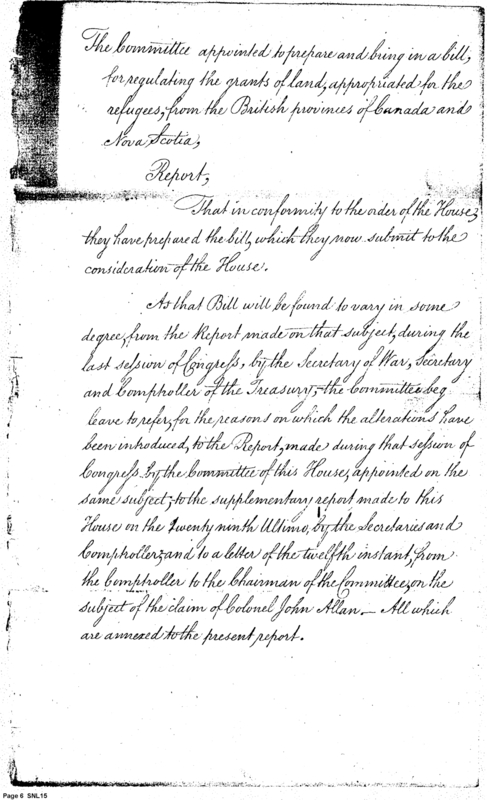 The Committee appointed to prepare and bring in a bill,
for regulating the grants of land, appropriated for the
refugees, from the British provinces of Canada and
Nova Scotia,
Report,
That in conformity to the order of the House,
they have prepared the bill, which they now submit to the
consideration of the House.
As that Bill will be found to vary in some
degree, from the Report made on that subject, during the
last session of Congress, by the Secretary of War, Secretary
and Comptroller of the Treasury, the Committee beg
leave to refer, for the reasons on which the alterations have
been introduced, to the Report, made during that session of
Congress by the Committee of this House, appointed on the
same subject; to the supplementary report made to this
House on the twenty ninth Ultimo, by the Secretaries and
Comptroller; and to a letter of the twelfth instant, from
the Comptroller to the Chairman of the Committee, on the
subject of the claim of Colonel John Allan. — All which
are annexed to the present report.
Page 6 SNL15